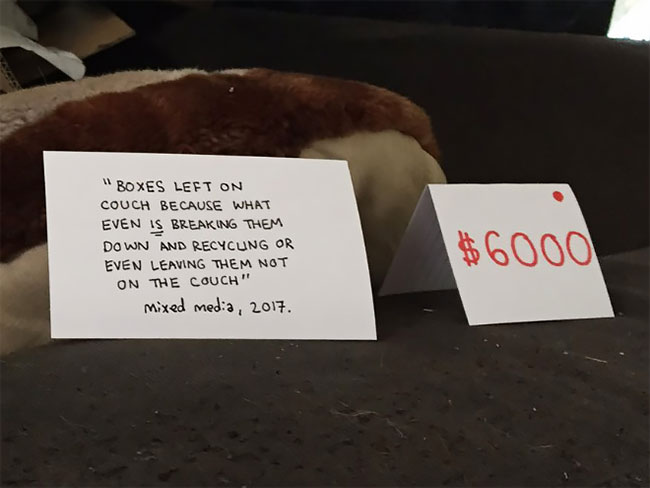 "BOXES LEFT ON
COUCH BECAUSE WHAT
EVEN IS BREAKING THEM
DOWN AND RECYCLING OR
EVEN LEAVING THEM NOT
ON THE COUCH"
Mixed media, 2017.
$6000